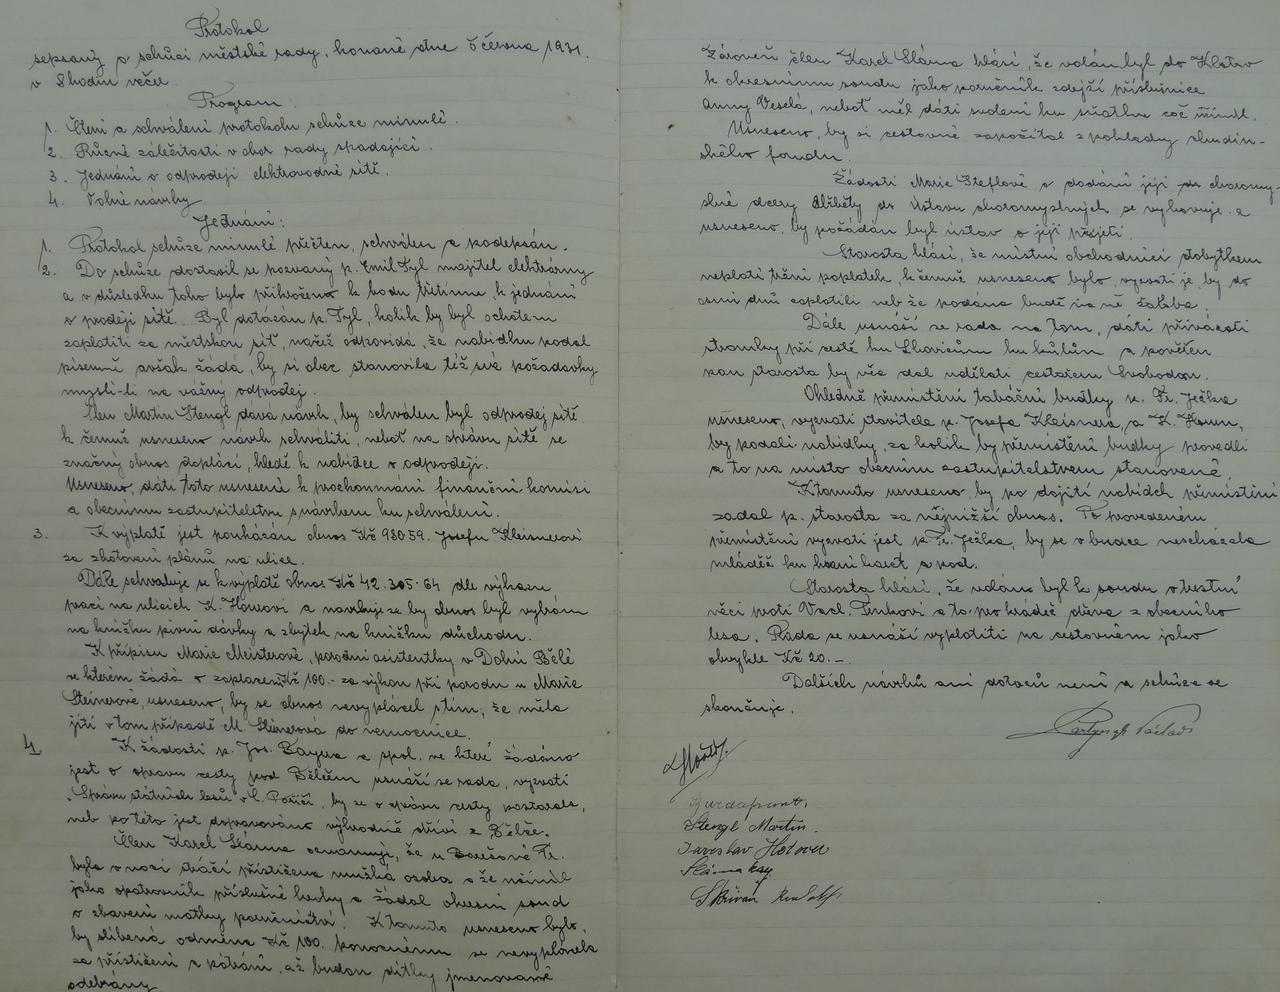 Protokol
sepsaný o schůzi městské rady, konané dne 5 června 1931.
v 8 hodin večer.
Program:
1. Čtení a schválení protokolu schůze minulé.
2. Různé záležitosti v obor rady spadající.
3. Jednání o odprodeji elektrovodné sítě.
4. Volné návrhy
Jednání:
1. Protokol schůze minulé přečten, schválen a podepsán.
2. Do schůze dostavil se pozvaný p. Emil Tyl majitel elektrárny
a v důsledku toho bylo přikročeno k bodu třetímu k jednání
o prodeji sítě. Byl dotázán p. Tyl, kolik by byl ochoten
zaplatiti za městskou síť, načež odpovídá, že nabídku podal
písemně avšak žádá, by si obec stanovila též své požadavky
myslí-li na vážný odprodej.
Člen Martin Štengl dává návrh, by schválen byl odprodej sítě
k čemuž usneseno návrh schváliti, neboť na správu sítě se
značný obnos doplácí, hledě k nabídce o odprodeji.
Usneseno, dáti toto usnesení k prozkoumání finanční komisi
a obecnímu zastupitelstvu s návrhem ku schválení.
3. K výplatě jest poukázán obnos Kč 980.59. Josefu Kleisnerovi
za zhotovení plánů na ulice.
Dále schvaluje se k výplatě obnos Kč 42.305.64 dle výkazu
prací na ulicích K. Houzovi a navrhuje se by obnos byl vybrán
na knížku pivní dávky a zbytek na knížku důchodu.
K přípisu Marie Meisterové, porodní asistentky v Dolní Bělé
ve kterém žádá o zaplacení Kč 100.- za výkon při porodu u Marie
Steinerové, usneseno, by se obnos nevyplácel s tím, že měla
jíti v tom případě M. Steinerová do nemocnice.
4. K žádosti p. Jos. Bayera a spol. ve které žádáno
jest o opravu cesty pod Bělčem usnáší se rada, vyzvati
Správu státních lesů v Č. Poříčí, by se o správu cesty postarala,
neb po této jest dopravováno výhradně dříví z Bělče.
Člen Karel Sláma oznamuje, že u Barešové Fr.
byla v noci stráží přistižena mužská osoba a že učinil
jako opatrovník příslušné kroky a žádal okresní soud
o zbavení matky poručnictví. K tomuto usneseno bylo,
by slíbená odměna Kč 100. ponocnému se nevyplácela
za přistižení a pátrání až budou dítky jmenované
odebrány
Zároveň člen Karel Sláma hlásí, že volán byl do Klatov
k okresnímu soudu jako poručník zdejší příslušnice
Anny Veselá, neboť měl dáti svolení ku sňatku což učinil.
Usneseno, by si cestovné započítal z pokladny chudin-
ského fondu.
Žádosti Marie Šteflové o dodání její do choromy-
slné dcery Alžběty do Ústavu choromyslných se vyhovuje a
usneseno, by požádán byl ústav o její přijetí.
Starosta hlásí, že místní obchodníci dobytkem
neplatí tržní poplatek, k čemuž usneseno bylo, vyzvati je, by do
osmi dnů zaplatili neb že podána bude na ně žaloba.
Dále usnáší se rada na tom, dáti přivázati
stromky při cestě ku Lhovicům ku kůlům a pověřen
pan starosta by věc dal udělati cestařem Svobodou.
Ohledně přemístění tabáční budky p. Fr. Ježka
usneseno, vyzvati stavitele p. Josefa Kleisnera, a K. Houzu,
by podali nabídky, za kolik by přemístění budky provedli
a to na místo obecním zastupitelstvem stanovené.
K tomuto usneseno by po dojití nabídek přemístění
zadal p. starosta za nejnižší obnos. Po provedeném
přemístění vyzvati jest p. Fr. Ježka, by se v budce nescházela
mládež ku hraní karet a pod.
Starosta hlásí, že volán byl k soudu v trestní
věci proti Václ. Tinkovi a to pro krádež dřeva z obecního
lesa. Rada se usnáší vyplatiti na cestovném jako
obvykle Kč 20.-.
Dalších návrhů ani dotazů není a schůze se
skončuje.
Štengl Martin.
Jaroslav Hotovec
Sláma Kar.
Skřivan Rudolf